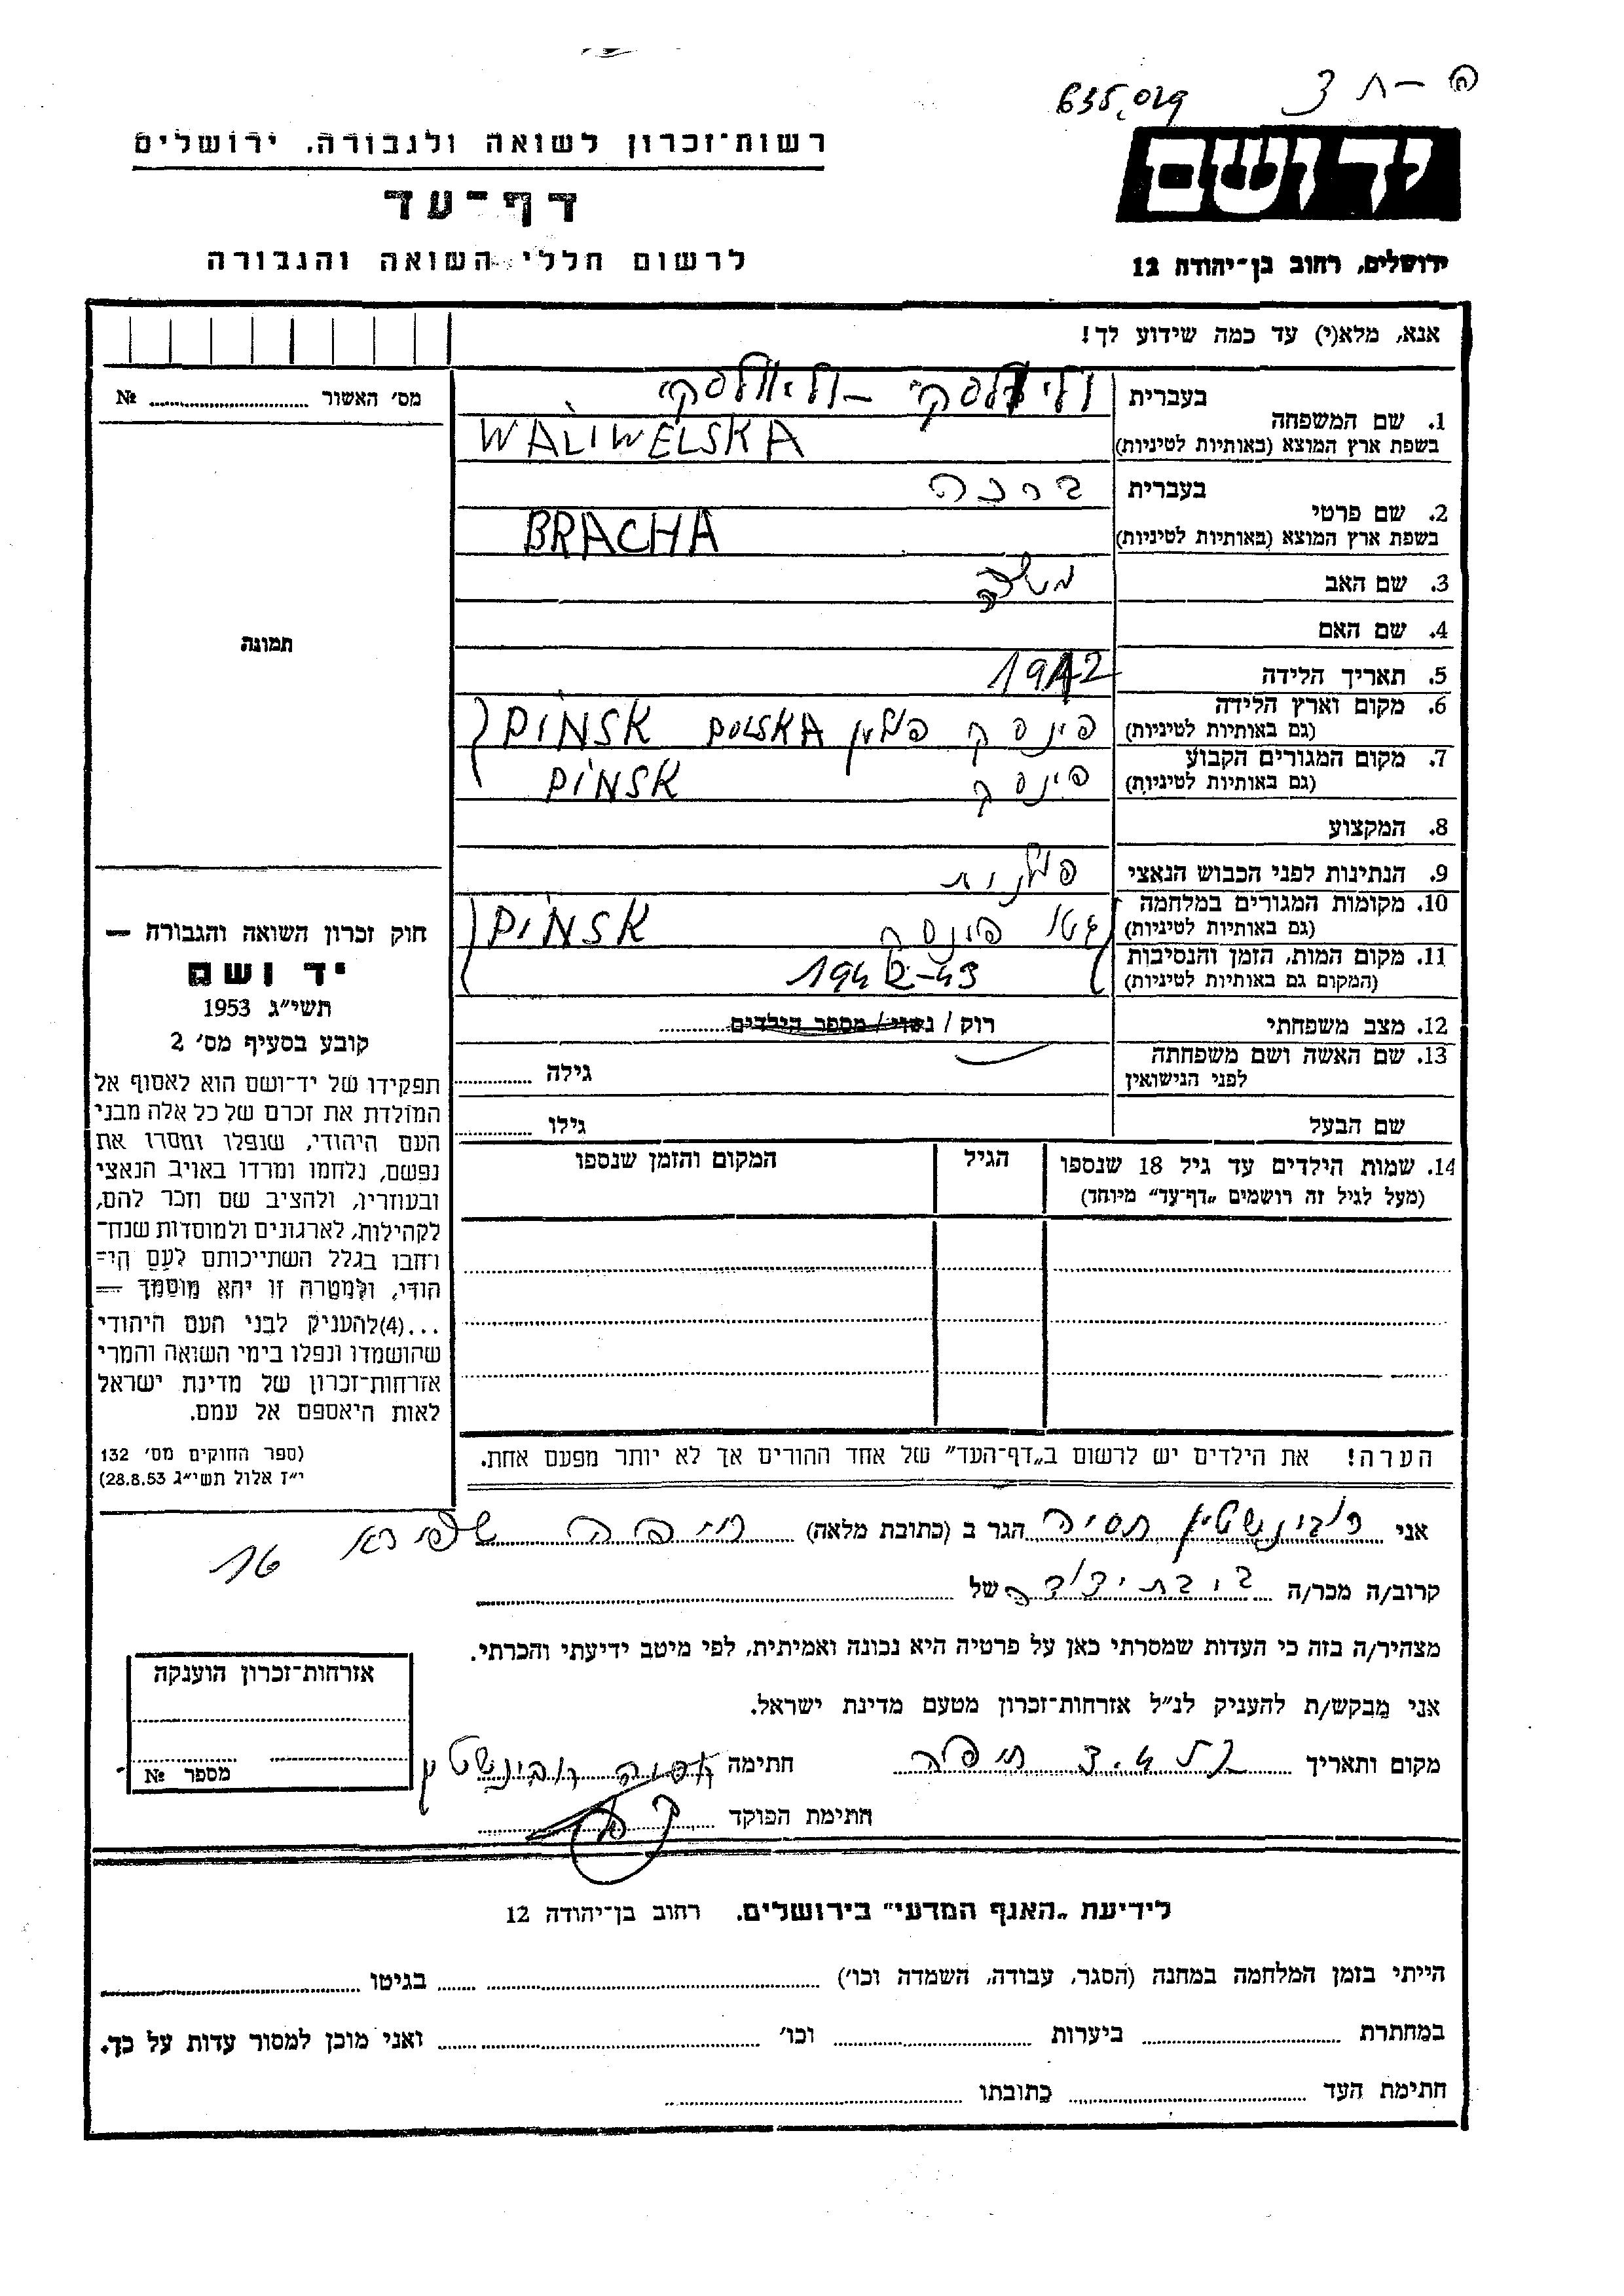 635,029
רשות־זכרון לשואה ולגבורה. ירושלים
דף־עד
לרשום חללי השואה והגבורה
יד ושם
ירושלים, רחוב בן־יהודה 12
אנא, מלא(י) עד כמה שידוע לך!
מס׳ האשור № 
בעברית
1. שם המשפחה
בשפת ארץ המוצא (באותיות לטיניות)
WALIWELSKA
בעברית ברכה
2. שם פרטי
בשפת ארץ המוצא (באותיות לטיניות)
BRACHA
3. שם האב משה
4. שם האם
5. תאריך הלידה 1912
6. מקום וארץ הלידה
(גם באותיות לטיניות)
פינסק פולין POLSKA PINSK
7. מקום המגורים הקבוע
(גם באותיות לטיניות)
פינסק PINSK
8. המקצוע
9. הנתינות לפני הכבוש הנאצי פולנית
10. מקומות המגורים במלחמה
(גם באותיות לטיניות)
גטו פינסק PINSK
11. מקום המות, הזמן והנסיבות
(המקום גם באותיות לטיניות)
1942-43
12. מצב משפחתי רוק / נשוי / מספר הילדים
13. שם האשה ושם משפחתה
לפני הנישואין
גילה
שם הבעל גילו
14. שמות הילדים עד גיל 18 שנספו
(מעל לגיל זה רושמים „דף־עד״ מיוחד)
הגיל
המקום והזמן שנספו
תמונה
חוק זכרון השואה והגבורה —
יד ושם
תשי״ג 1953
קובע בסעיף מס׳ 2
תפקידו של יד־ושם הוא לאסוף אל
המולדת את זכרם של כל אלה מבני
העם היהודי, שנפלו ומסרו את
נפשם, נלחמו ומרדו באויב הנאצי
ובעוזריו, ולהציב שם וזכר להם,
לקהילות, לארגונים ולמוסדות שנח־
רחבו בגלל השתייכותם לעם הי־
הודי, ולמטרה זו יהא מוסמך —
...(4)להעניק לבני העם היהודי
שהושמדו ונפלו בימי השואה והמרי
אזרחות־זכרון של מדינת ישראל
לאות היאספם אל עמם.
(ספר החוקים מס׳ 132
י״ז אלול תשי״ג 28.8.53)
הערה! את הילדים יש לרשום ב„דף־העד״ של אחד ההורים אך לא יותר מפעם אחת.
אני רובינשטין חסיה הגר ב (כתובת מלאה) חיפה שפירא 16
קרוב/ה מכר/ה של
מצהיר/ה בזה כי העדות שמסרתי כאן על פרטיה היא נכונה ואמיתית, לפי מיטב ידיעתי והכרתי.
אני מבקש/ת להעניק לנ״ל אזרחות־זכרון מטעם מדינת ישראל.
מקום ותאריך חיפה חתימה חסיה רובינשטין
חתימת הפוקד
אזרחות־זכרון הוענקה
מספר №
לידיעת „האגף המדעי״ בירושלים. רחוב בן־יהודה 12
הייתי בזמן המלחמה במחנה (הסגר, עבודה, השמדה וכו׳) בגיטו
במחתרת ביערות וכו׳ ואני מוכן למסור עדות על כך.
חתימת העד כתובתו